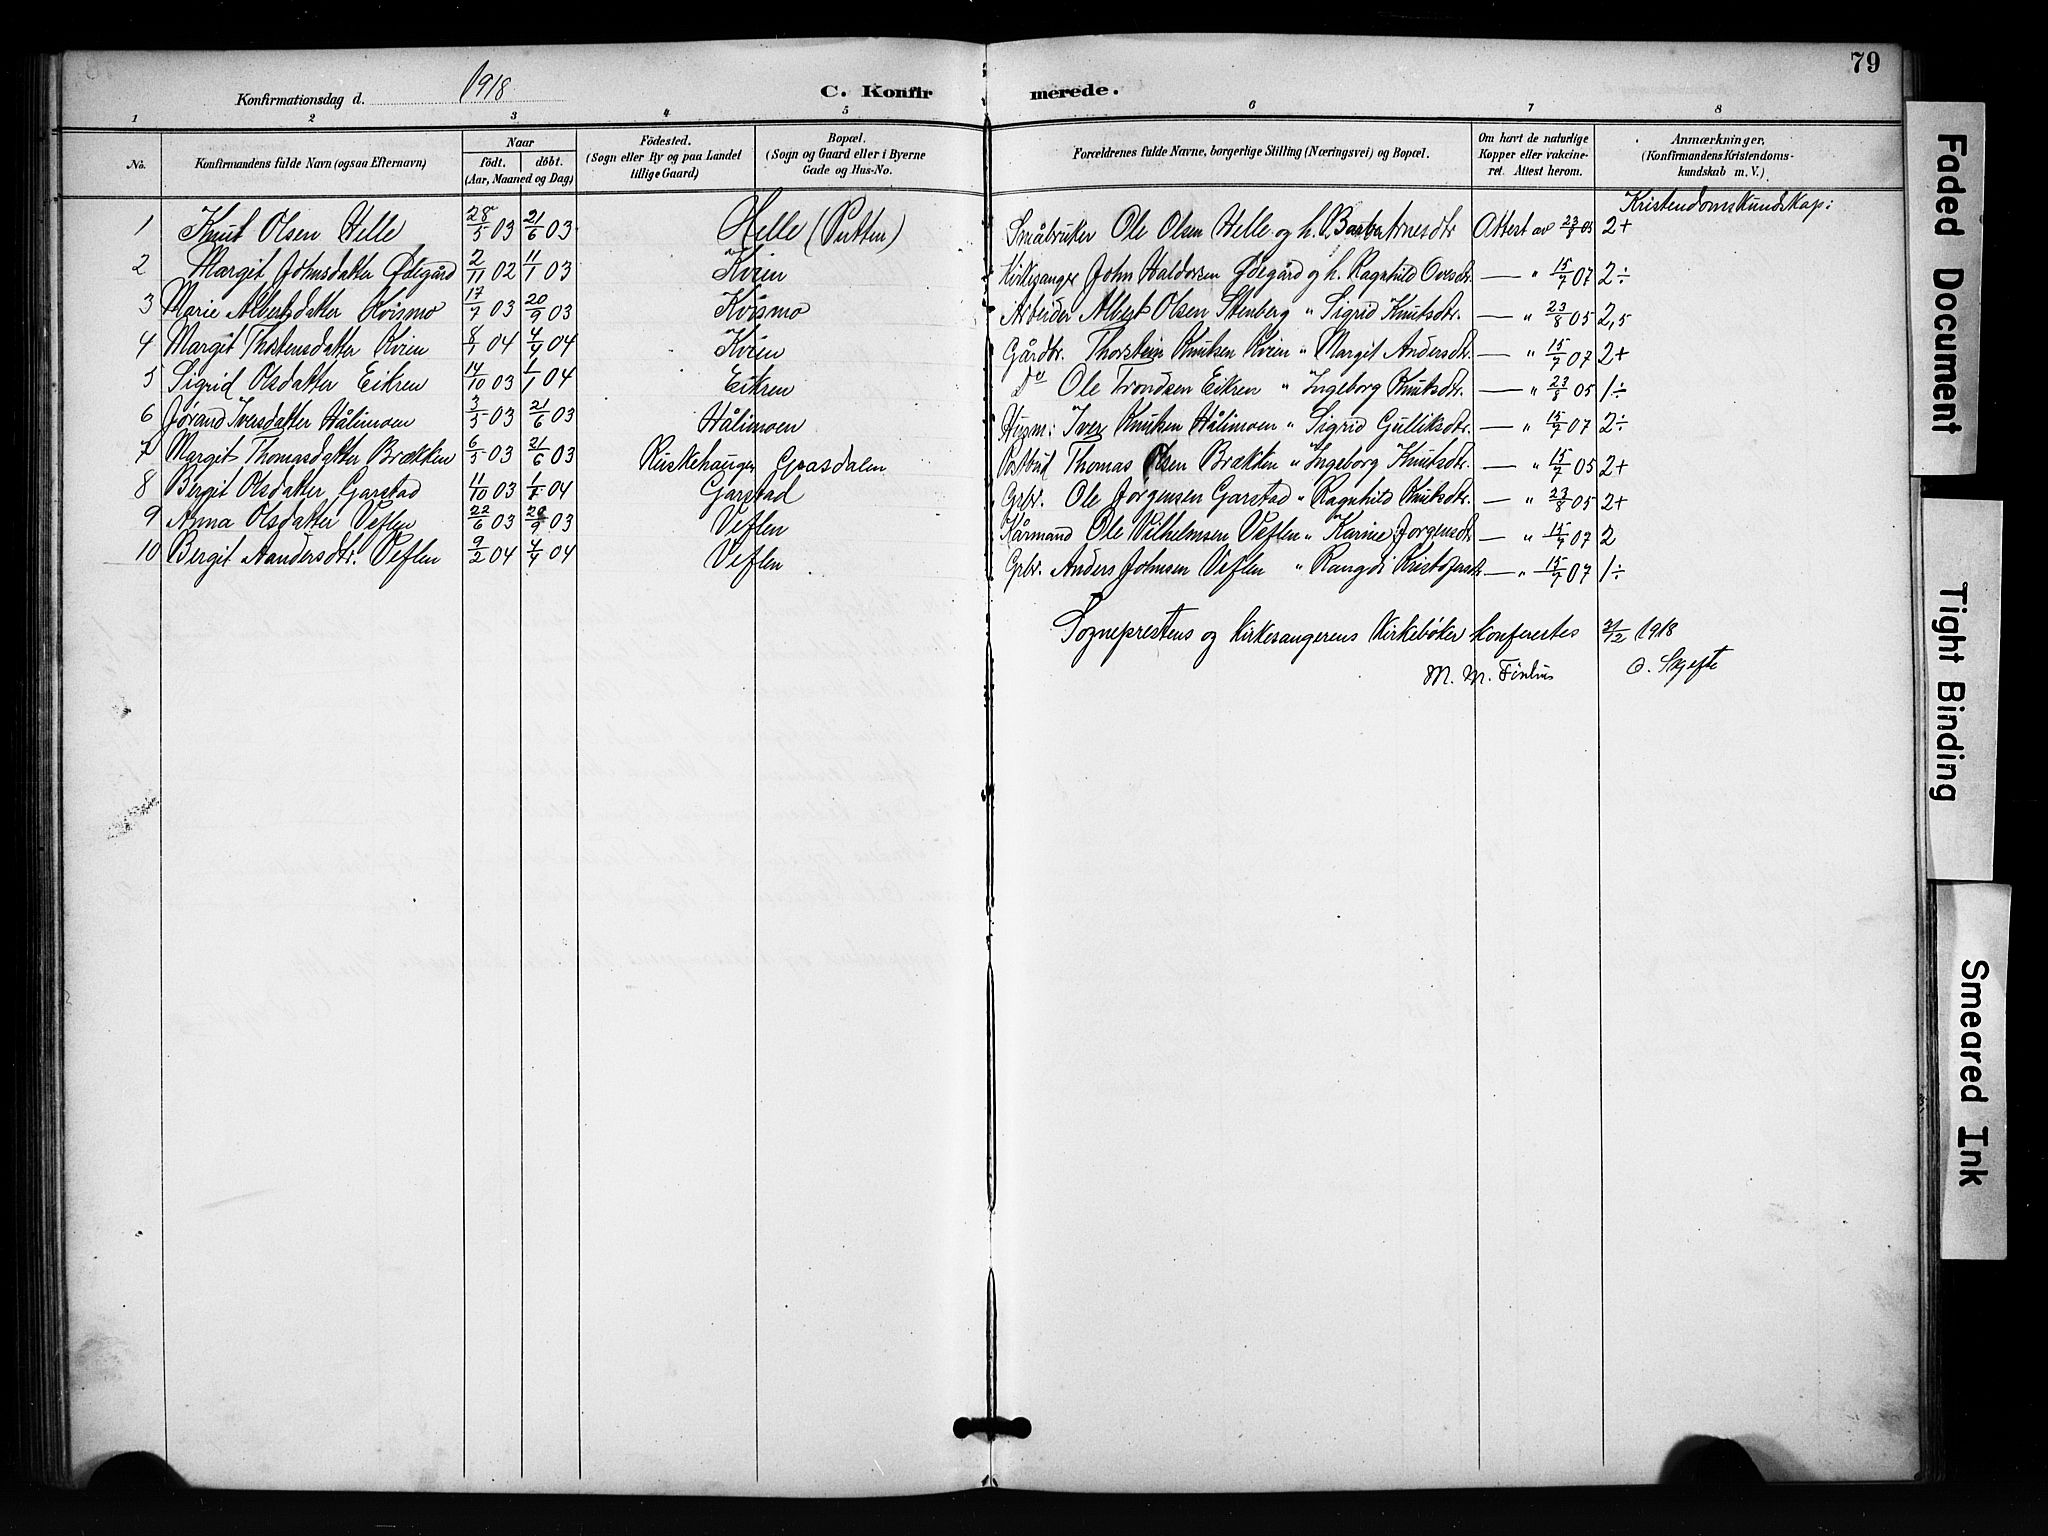 79
Konfirmationsdag d. 1918
C. Konfirmerede.
1 2 3 4 5 6 7 8
No. | Konfirmandens fulde Navn (ogsaa Efternavn) | Naar født. døbt. (Aar, Maaned og Dag) | Födested. (Sogn eller By og paa Landet tillige Gaard) | Bopæl. (Sogn og Gaard eller i Byerne Gade og Hus-No. | Forældrenes fulde Navne, borgerlige Stilling (Næringsvei) og Bopæl. | Om havt de naturlige Kopper eller vakcineret. Attest herom. | Anmærkninger, (Konfirmandens Kristendomskundskab m. V.)
Kristendomskundskap:
1 Knut Olsen Helle 28/5 03 21/6 03 Helle (Putten) Småbruker Ole Olsen Helle og h. Barba Arnesdtr Attest av 23/8 05 2+
2 Margit Johnsdatter Ødegård 2/11 02 11/1 03 Kvien Kirkesanger John Haldorsen Ødegård og h. Ragnhild Ovesdtr. — " 15/7 07 2÷
3 Marie Albertsdatter Kvismo 17/7 03 20/9 03 Kvismo Arbeider Albert Olsen Stenberg " Sigrid Knutsdtr. — " 23/8 05 2,5
4 Margit Thostensdatter Kvien 8/1 04 4/4 04 Kvien Gårdbr. Thorstein Knutsen Kvien " Margit Andersdtr. — " 15/7 07 2+
5 Sigrid Olsdatter Eikren 14/10 03 1/1 04 Eikren Do Ole Trondsen Eikren " Ingeborg Knutsdtr. — " 23/8 05 1÷
6 Jørand Iversdatter Hålimoen 3/5 03 21/6 03 Hålimoen Husm: Iver Knutsen Hålimoen " Sigrid Gulliksdtr. — " 15/7 07 2÷
7 Margit Thomasdatter Brækken 6/5 03 21/6 03 Ruskehaugen Gvasdalen Postbud Thomas Olsen Brækken " Ingeborg Knutsdtr. — " 15/7 05 2+
8 Bergit Olsdatter Garstad 11/10 03 1/1 04 Garstad Grbr. Ole Jorgensen Garstad " Ragnhild Knutsdtr. — " 23/8 05 2+
9 Anna Olsdatter Veflen 22/6 03 20/9 03 Veflen Kårmand Ole Vilhelmsen Veflen " Karine Jorgensdtr — " 15/7 07 2
10 Bergit Aandersdtr. Veflen 9/2 04 4/4 04 Veflen Grbr. Anders Johnsen Veflen " Rangdi — " 15/7 07 1÷
Sogneprestens og kirkesangerens kirkebøker konferertes 21/2 1918
M. M.
Faded Document
Tight Binding
Smeared Ink